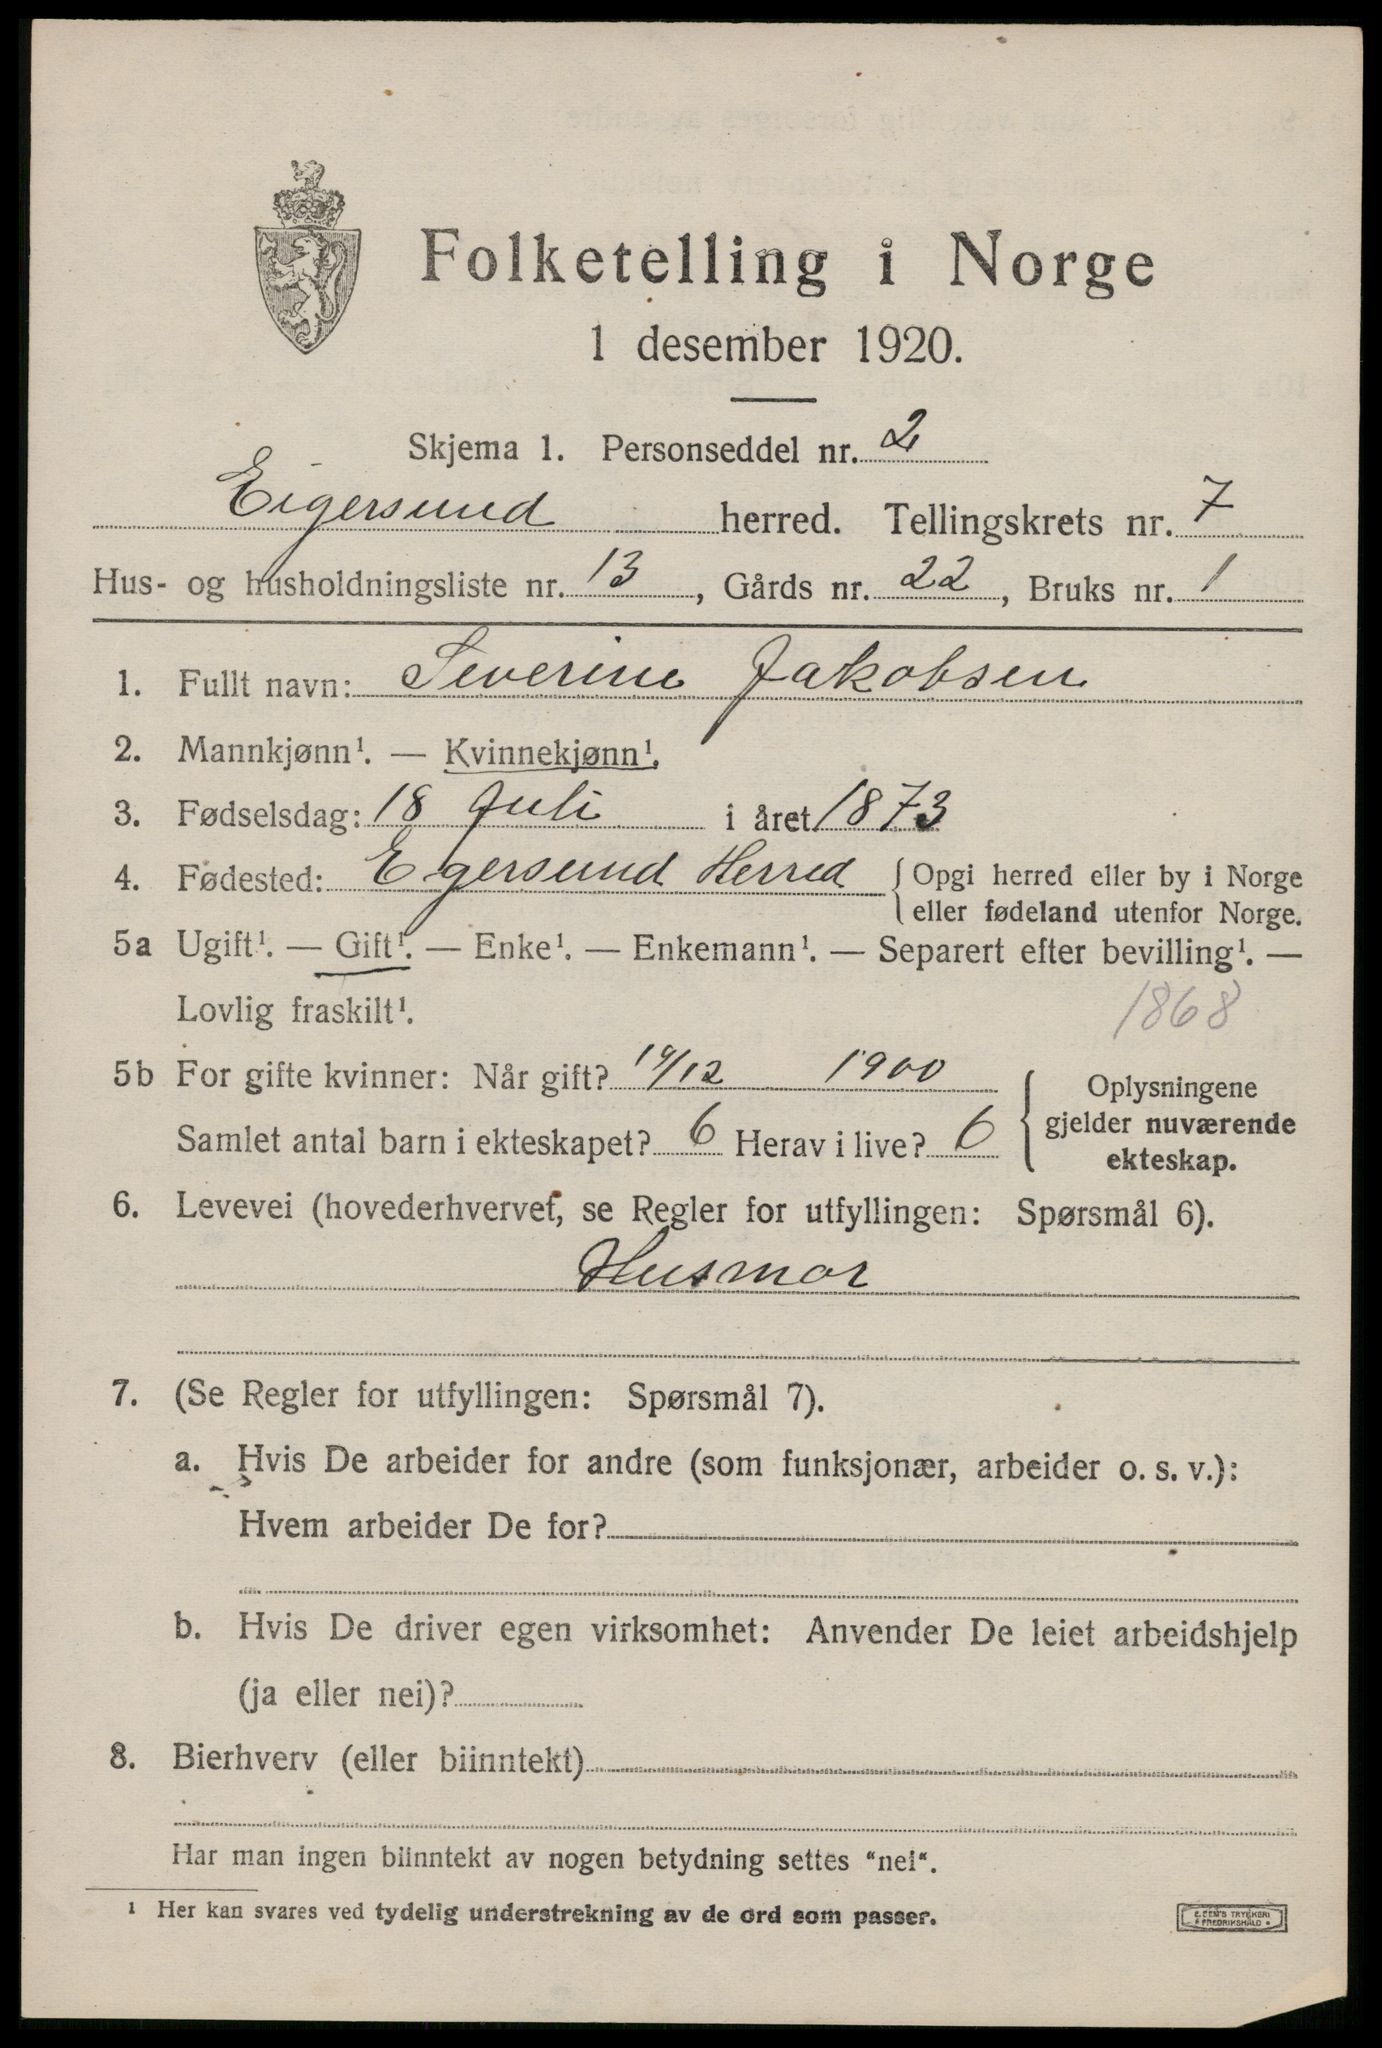 Folketelling i Norge
1 desember 1920.
Skjema 1. Personseddel nr. 2
Eigersund herred. Tellingskrets nr. 7
Hus- og husholdningsliste nr. 13, Gårds nr. 22, Bruks nr. 1
1. Fullt navn: Severine Jakobsen
2. Mannkjønn¹. — Kvinnekjønn¹.
3. Fødselsdag: 18 Juli i året 1873
4. Fødested: Egersund Herred { Opgi herred eller by i Norge
eller fødeland utenfor Norge.
5a Ugift¹. — Gift¹. — Enke¹. — Enkemann¹. — Separert efter bevilling¹. —
Lovlig fraskilt¹.
1868
5b For gifte kvinner: Når gift? 19/12 1900
Samlet antal barn i ekteskapet? 6 Herav i live? 6
{ Oplysningene
gjelder nuværende
ekteskap.
6. Levevei (hovederhvervet, se Regler for utfyllingen: Spørsmål 6).
Husmor
7. (Se Regler for utfyllingen: Spørsmål 7).
a. Hvis De arbeider for andre (som funksjonær, arbeider o. s. v.):
Hvem arbeider De for?
b. Hvis De driver egen virksomhet: Anvender De leiet arbeidshjelp
(ja eller nei)?
8. Bierhverv (eller biinntekt)
Har man ingen biinntekt av nogen betydning settes "nei".
¹ Her kan svares ved tydelig understrekning av de ord som passer.
E. SEM'S TRYKKERI
FREDRIKSHALD